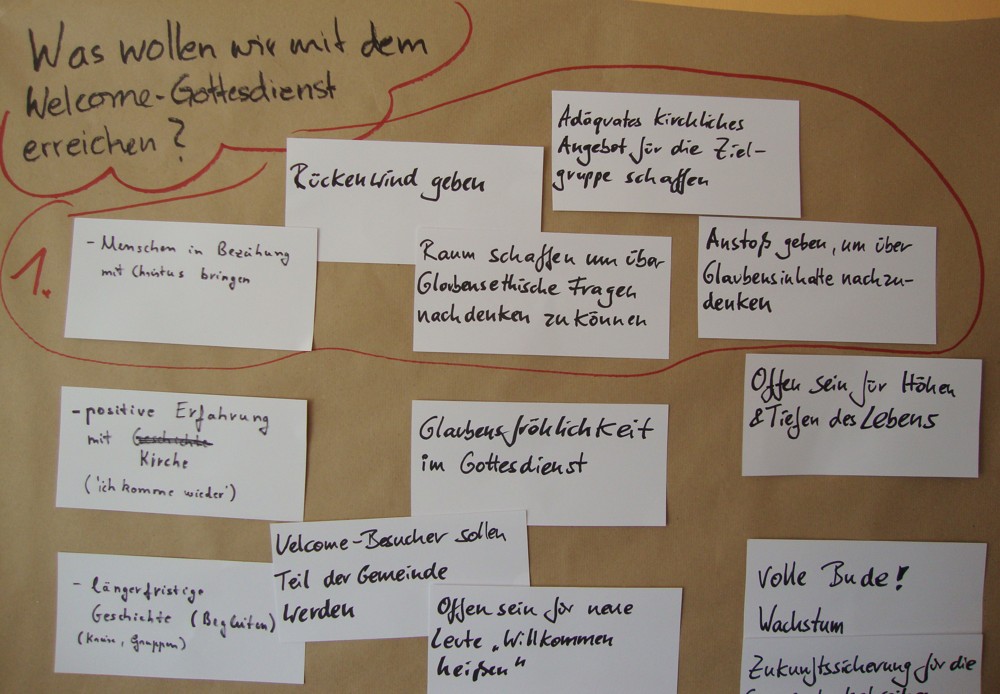 Was wollen wir mit dem
Welcome-Gottesdienst
erreichen?
1.
Rückenwind geben
Adäquates kirchliches
Angebot für die Ziel-
gruppe schaffen
- Menschen in Bezihung
mit Christus bringen
Raum schaffen um über
Glaubensethische Fragen
nachdenken zu können
Anstoß geben, um über
Glaubensinhalte nachzu-
denken
Offen sein für Höhen
& Tiefen des Lebens
- positive Erfahrung
mit Geschichte
Kirche
('ich komme wieder')
Glaubensfröhlichkeit
im Gottesdienst
Welcome-Besucher sollen
Teil der Gemeinde
werden
- längerfristige
Geschichte (Begleiten)
(Kurse, Gruppen)
Offen sein für neue
Leute „Willkommen
heißen"
Volle Bude!
Wachstum
Zukunftssicherung für die